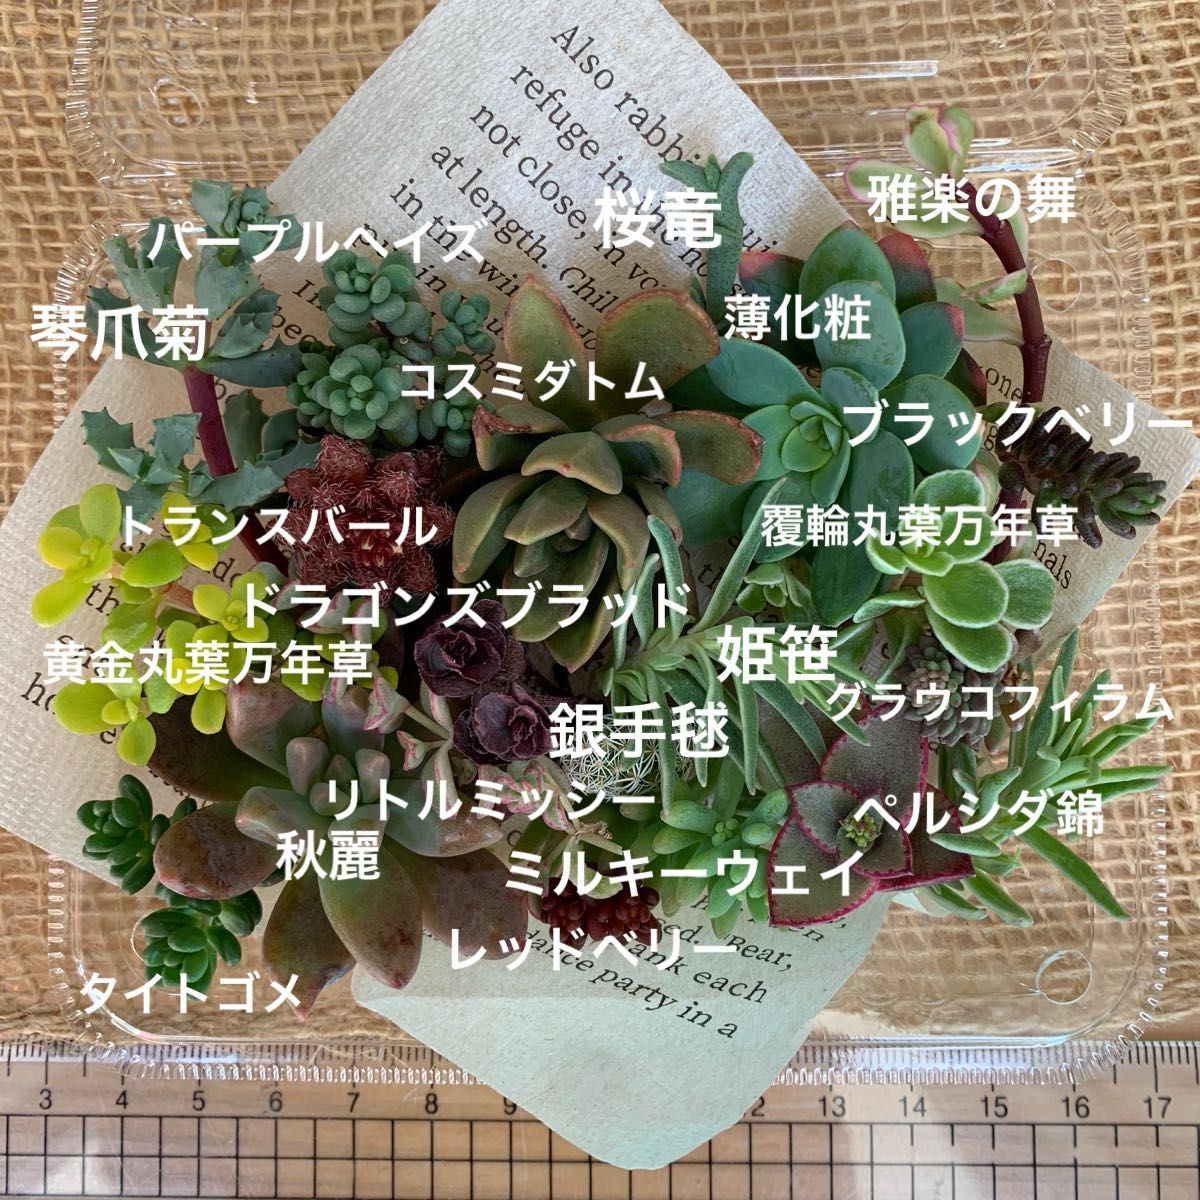 Also rabbi
refuge in
not close, in voi
at length. Chil
in the wi
桜竜
雅楽の舞
パープルヘイズ
琴爪菊
薄化粧
コスミダトム
ブラックベリー
トランスバール
覆輪丸葉万年草
ドラゴンズブラッド
黄金丸葉万年草
姫笹
グラウコフィラム
銀手毬
リトルミッシー
ペルシダ錦
秋麗
ミルキーウェイ
レッドベリー
タイトゴメ
Bear,
ank each
dance party in a
3 4 5 6 7 8 9 12 13 14 15 16 17